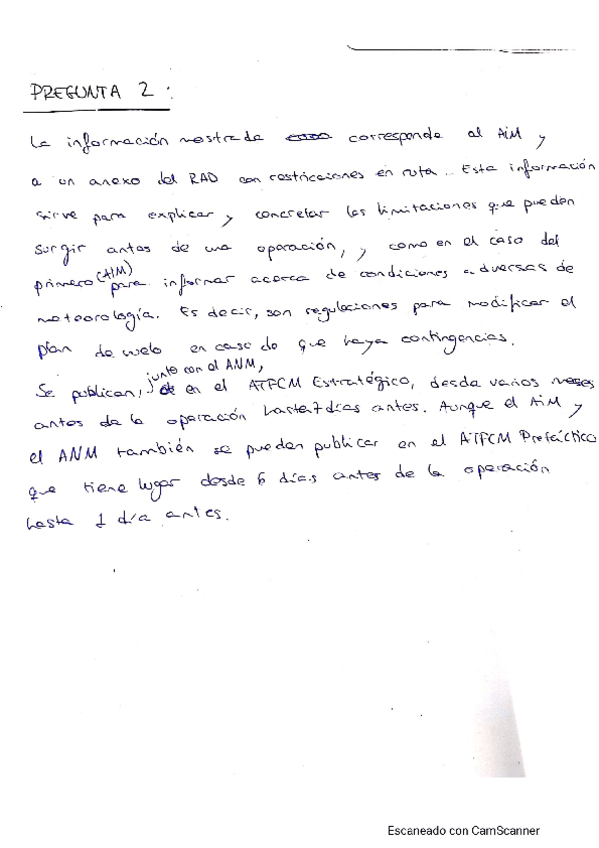 PREGUNTA 2 :
La información mostrada corresponde al AIM y
a un anexo del RAD con restricciones en ruta. Esta información
sirve para explicar y concretar las limitaciones que pueden
surgir antes de una operación, y como en el caso del
primero (AIM) para informar acerca de condiciones adversas de
meteorología. Es decir, son regulaciones para modificar el
plan de vuelo en caso de que haya contingencias.
Se publican, junto con el ANM, en el ATFCM Estratégico, desde varios meses
antes de la operación hasta 7 días antes. Aunque el AIM y
el ANM también se pueden publicar en el ATFCM Pretáctico
que tiene lugar desde 6 días antes de la operación
hasta 1 día antes.
Escaneado con CamScanner